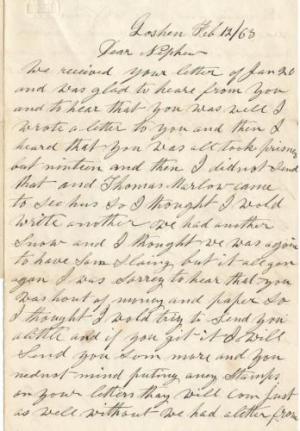 Goshen Feb 12/63
Dear Nephew
We recived your letter of Jan 20
and was glad to heare from you
and to hear that you was will I
wrote a letter to you and then I
heard that you was all took prisnes
but ninten and then I did not send
that and Thomas Marlow came
to See hus So I thought I wold
write another we had another
Snow and I thought we was again
to have Som Slaing but it all gon
agan I was Sorrey to hear that you
was hout of money and paper So
I thought I wold try to Send you
a little and if you git it I will
Send you Som more and you
nednst mind puting aney Stamps
on your letters thay will com just
as well without we had a letter from